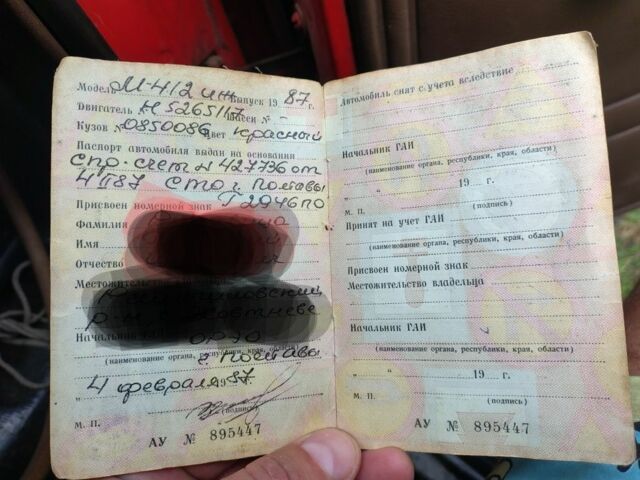 Модель М-412 иж Выпуск 1987 г.
Двигатель № 5265117 Шасси № -
Кузов № 0850086 Цвет красный
Паспорт автомобиля выдан на основании
спр-счет № 427736 от
4 II 87 СТО г. Полтавы
Присвоен номерной знак Г 2946 ПО
Фамилия
Имя
Отчество
Местожительство
р-н
Начальник
(наименование органа, республики, края, области)
г. Полтавы
4 февраля 1987.
(подпись)
М. П.
АУ № 895447
Автомобиль снят с учета вследствие
Начальник ГАИ
(наименование органа, республики, края, области)
" " 19 г.
М. П. (подпись)
Принят на учет ГАИ
(наименование органа, республики, края, области)
Присвоен номерной знак
Местожительство владельца
Начальник ГАИ
(наименование органа, республики, края, области)
" " 19 г.
М. П. (подпись)
АУ № 895447